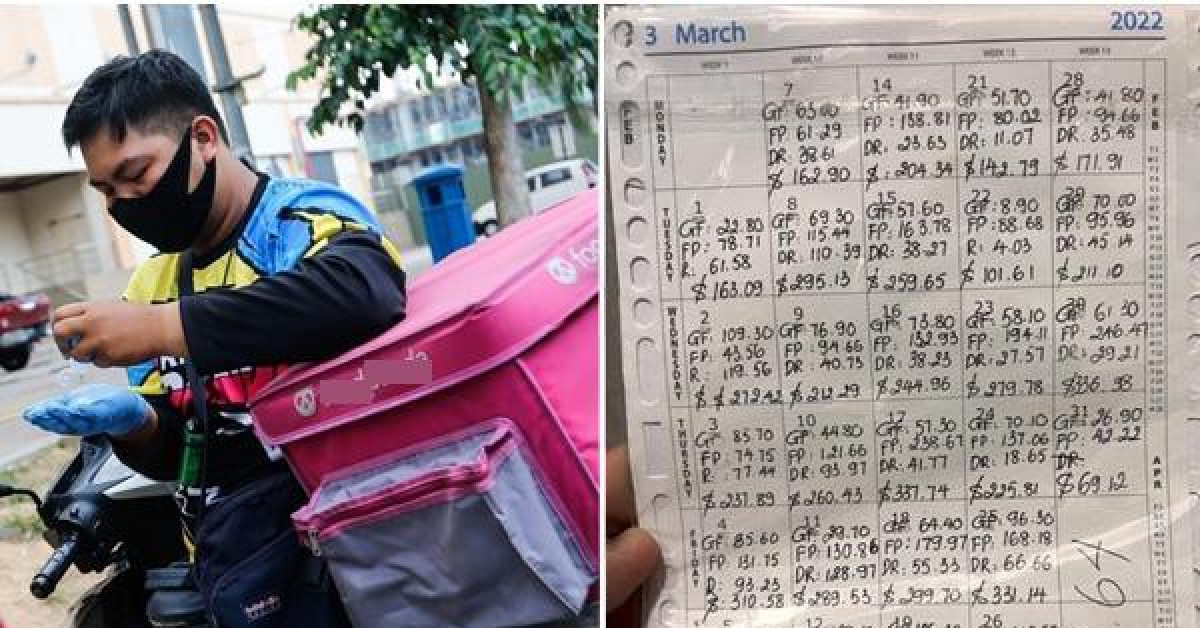 foo
3 March 2022
WEEK 11
WEEK 12
WEEK 13
FEB
MONDAY
7
GF: 63.00
FP: 61.29
DR: 38.61
$ 162.90
14
GF: 41.90
FP: 138.81
DR: 23.63
$: 204.34
21
GF: 51.70
FP: 80.02
DR: 11.07
$142.79
28
GF: 41.80
FP: 94.66
DR: 35.48
$ 171.91
FEB
TUESDAY
1
GF: 22.80
FP: 78.71
R: 61.58
$163.09
8
GF: 69.30
FP: 115.44
DR: 110.39
$295.13
15
GF: 57.60
FP: 163.78
DR: 38.27
$ 259.65
22
GF: 8.90
FP: 88.68
R: 4.03
$ 101.61
29
GF: 70.00
FP: 95.96
DR: 45.14
$ 211.10
WEDNESDAY
2
GF: 109.30
FP: 43.56
R: 119.56
$ $ 272.42
9
GF: 76.90
FP: 94.66
DR: 40.73
$ 212.29
16
GF: 73.80
FP: 132.93
DR: 38.23
$ 244.96
23
GF: 58.10
FP: 194.11
DR: 27.57
$ 279.78
GF: 61.30
FP: 246.47
DR: 29.21
$336.98
THURSDAY
3
GF: 85.70
FP: 74.75
R: 77.44
$ 237.89
10
GF: 44.80
FP: 121.66
DR: 93.97
$ 260.43
17
GF: 57.30
FP: 238.67
DR: 41.77
$ 337.74
24
GF: 70.10
FP: 137.06
DR: 18.65
$ 225.81
31
GF: 26.90
FP: 42.22
DR
$ 69.12
APR
FRIDAY
4
GF: 85.60
FP: 131.75
R: 93.23
$: 310.58
11
GF: 29.70
FP: 130.86
DR: 128.97
$ 289.53
18
GF: 64.40
FP: 179.97
DR: 55.33
$ 299.70
25
GF: 96.30
FP: 168.18
DR: 66.66
$ 331.14
67
5
12
26